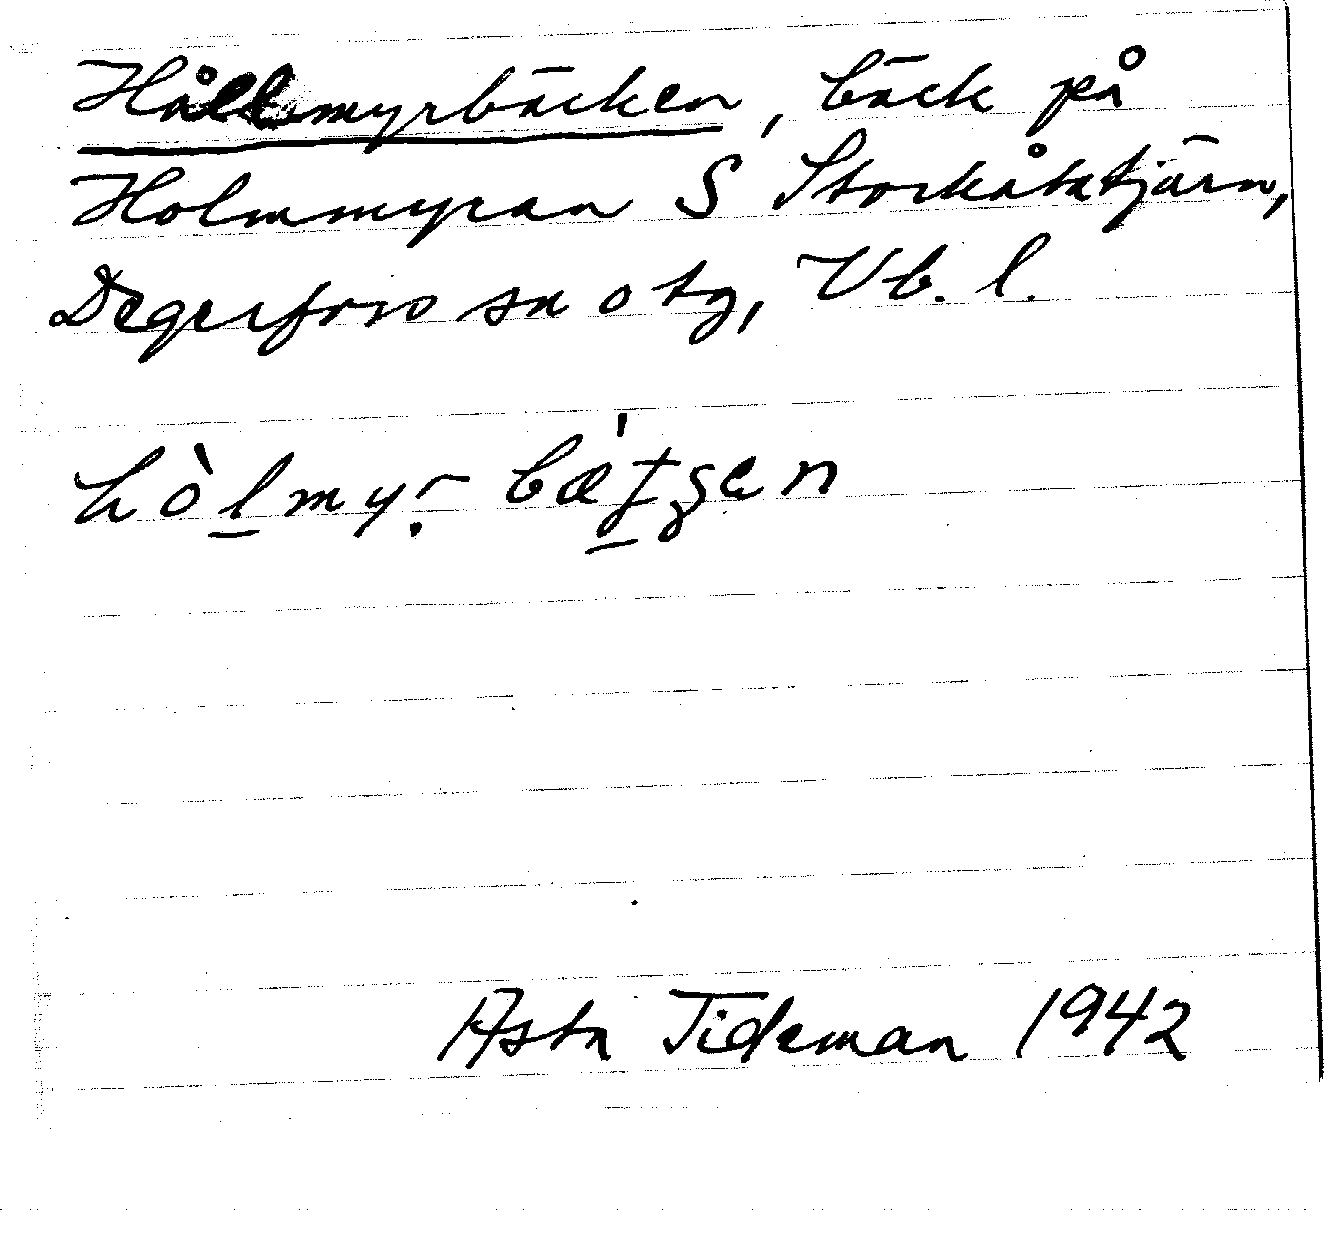 Hållmyrbäcken, bäck på
Holmmyran S Storkåtatjärn,
Degerfors sn o tg, Vb. l.
hòl̲myṛ- bæ't̲ʒen
Asta Tideman 1942